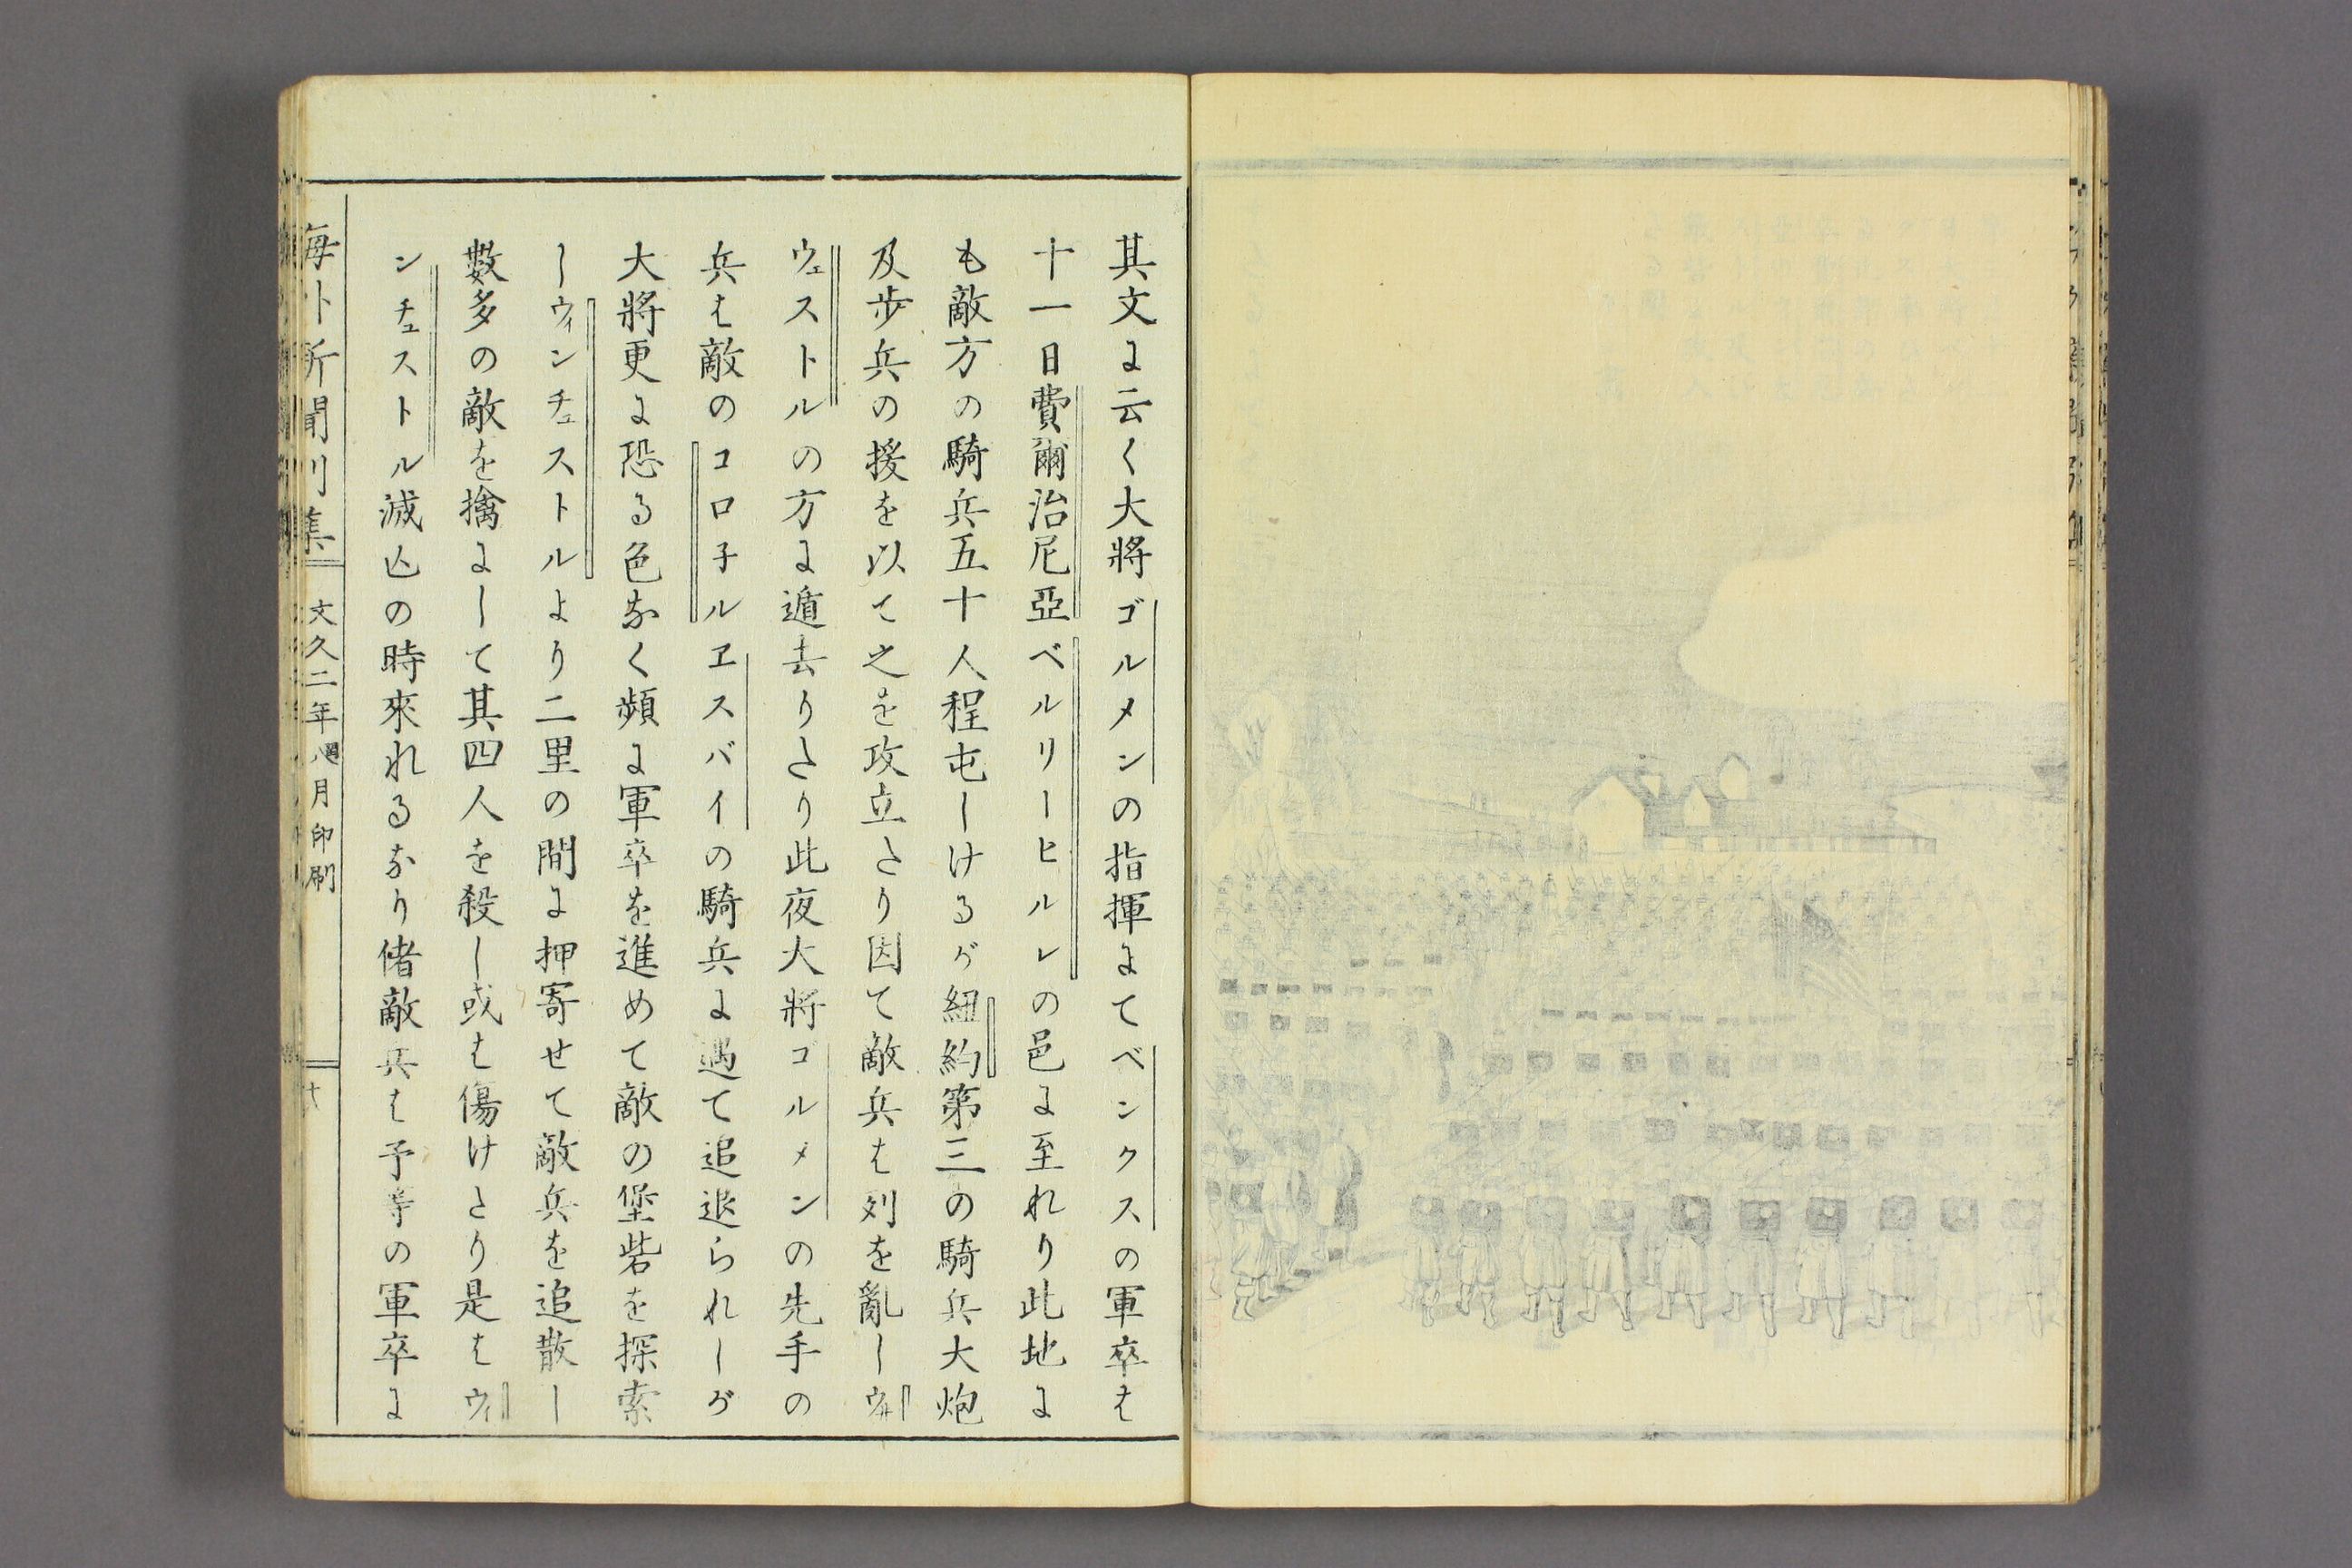 其文に云く大將ゴルメンの指揮にてベンクスの軍卒は
十一日費爾治尼亞ベルリーヒルレの邑に至れり此地に
も敵方の騎兵五十人程屯しけるが紐約第三の騎兵大炮
及歩兵の援を以て之を攻立たり因て敵兵は列を亂しウ井
ウェストルの方に遁去りたり此夜大將ゴルメンの先手の
兵は敵のコロ子ルヱスバイの騎兵に遇て追退られしが
大將更に恐る色なく頻に軍卒を進めて敵の堡砦を探索
しウィンチェストルより二里の間に押寄せて敵兵を追散し
數多の敵を擒にして其四人を殺し或は傷けたり是はウィ
ンチェストル滅亡の時來れるなり偖敵兵は予等の軍卒に
海外新聞別集 文久二年閏八月印刷 十